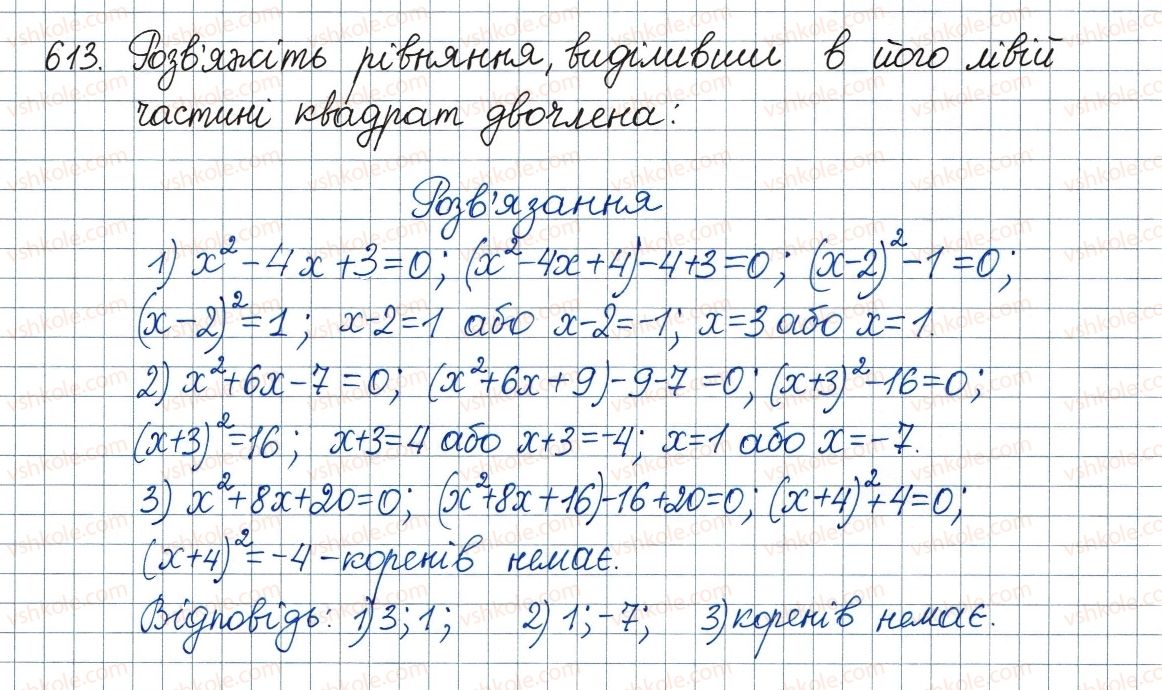 613. Розв'яжіть рівняння, виділивши в його лівій
частині квадрат двочлена:
Розв'язання
1) x² - 4x + 3 = 0; (x² - 4x + 4) - 4 + 3 = 0; (x - 2)² - 1 = 0;
(x - 2)² = 1; x - 2 = 1 або x - 2 = -1; x = 3 або x = 1.
2) x² + 6x - 7 = 0; (x² + 6x + 9) - 9 - 7 = 0; (x + 3)² - 16 = 0;
(x + 3)² = 16; x + 3 = 4 або x + 3 = -4; x = 1 або x = -7.
3) x² + 8x + 20 = 0; (x² + 8x + 16) - 16 + 20 = 0; (x + 4)² + 4 = 0;
(x + 4)² = -4 - коренів немає.
Відповідь: 1) 3; 1; 2) 1; -7; 3) коренів немає.